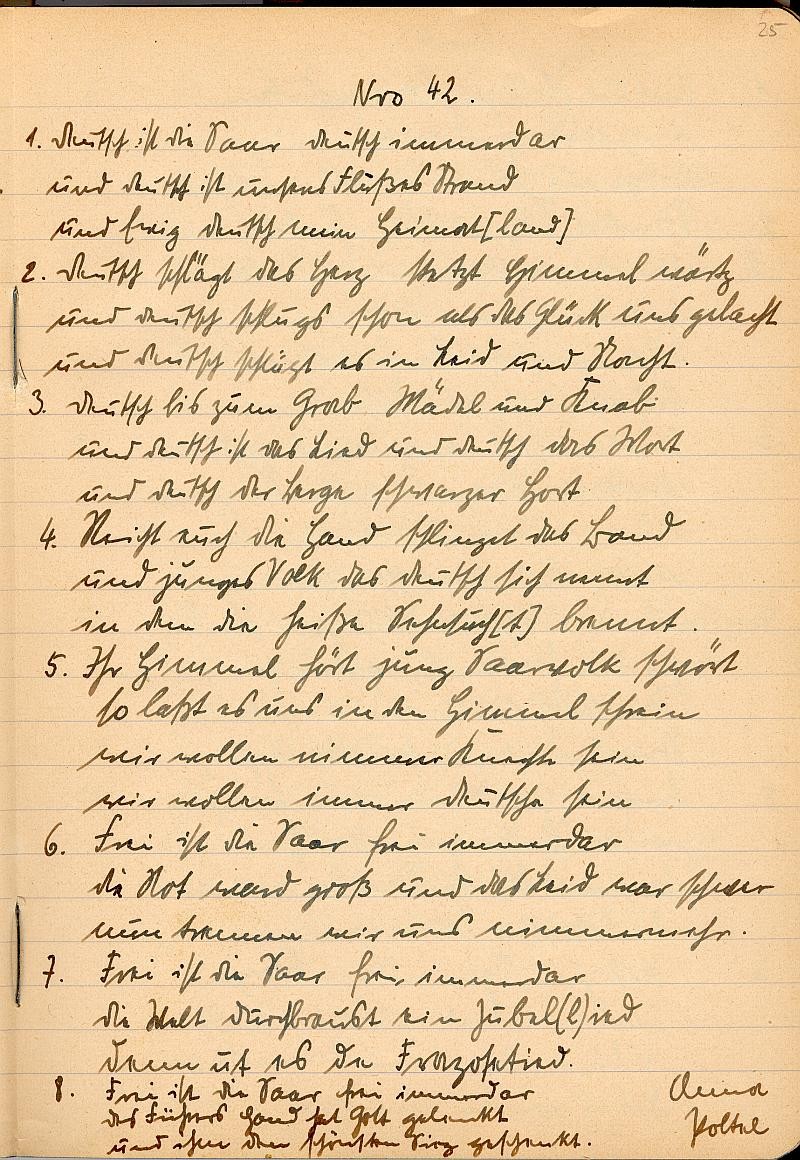 25
Nro 42.
1. deutsch ist die Saar deutsch immerdar
und deutsch ist unseres Flußes Strand
und Ewig deutsch mein Heimat[land]
2. deutsch schlägt das Herz stetzt Himmel wärtz
und deutsch schlugs schon als das Glück uns gelacht
und deutsch schlägt es in Leid und Nacht.
3. deutsch bis zum Grab Mädel und Knab
und deutsch ist das Lied und deutsch das Wort
und deutsch der berge schwarzer Hort
4. Reicht euch die Hand schlinget das Band
und junges Volk das deutsch sich nennt
in dem die heiße Sehnsuch[t] brennt.
5. Ihr Himmel hört jung Saarvolk schwört
so laßt es uns in den Himmel schrein
wir wollen nimmer Knechte sein
wir wollen immer deutsche sein
6. Frei ist die Saar frei immerdar
die Not ward groß und das Leid war schwer
nun trennen wir uns nimmermehr.
7. Frei ist die Saar frei immerdar
die Welt durchbraust ein Jubel(l)ied
denn es
8. Frei ist die Saar frei immerdar
des Führers Hand hat Gott gelenkt
und ihm den schönsten Sieg geschenkt.